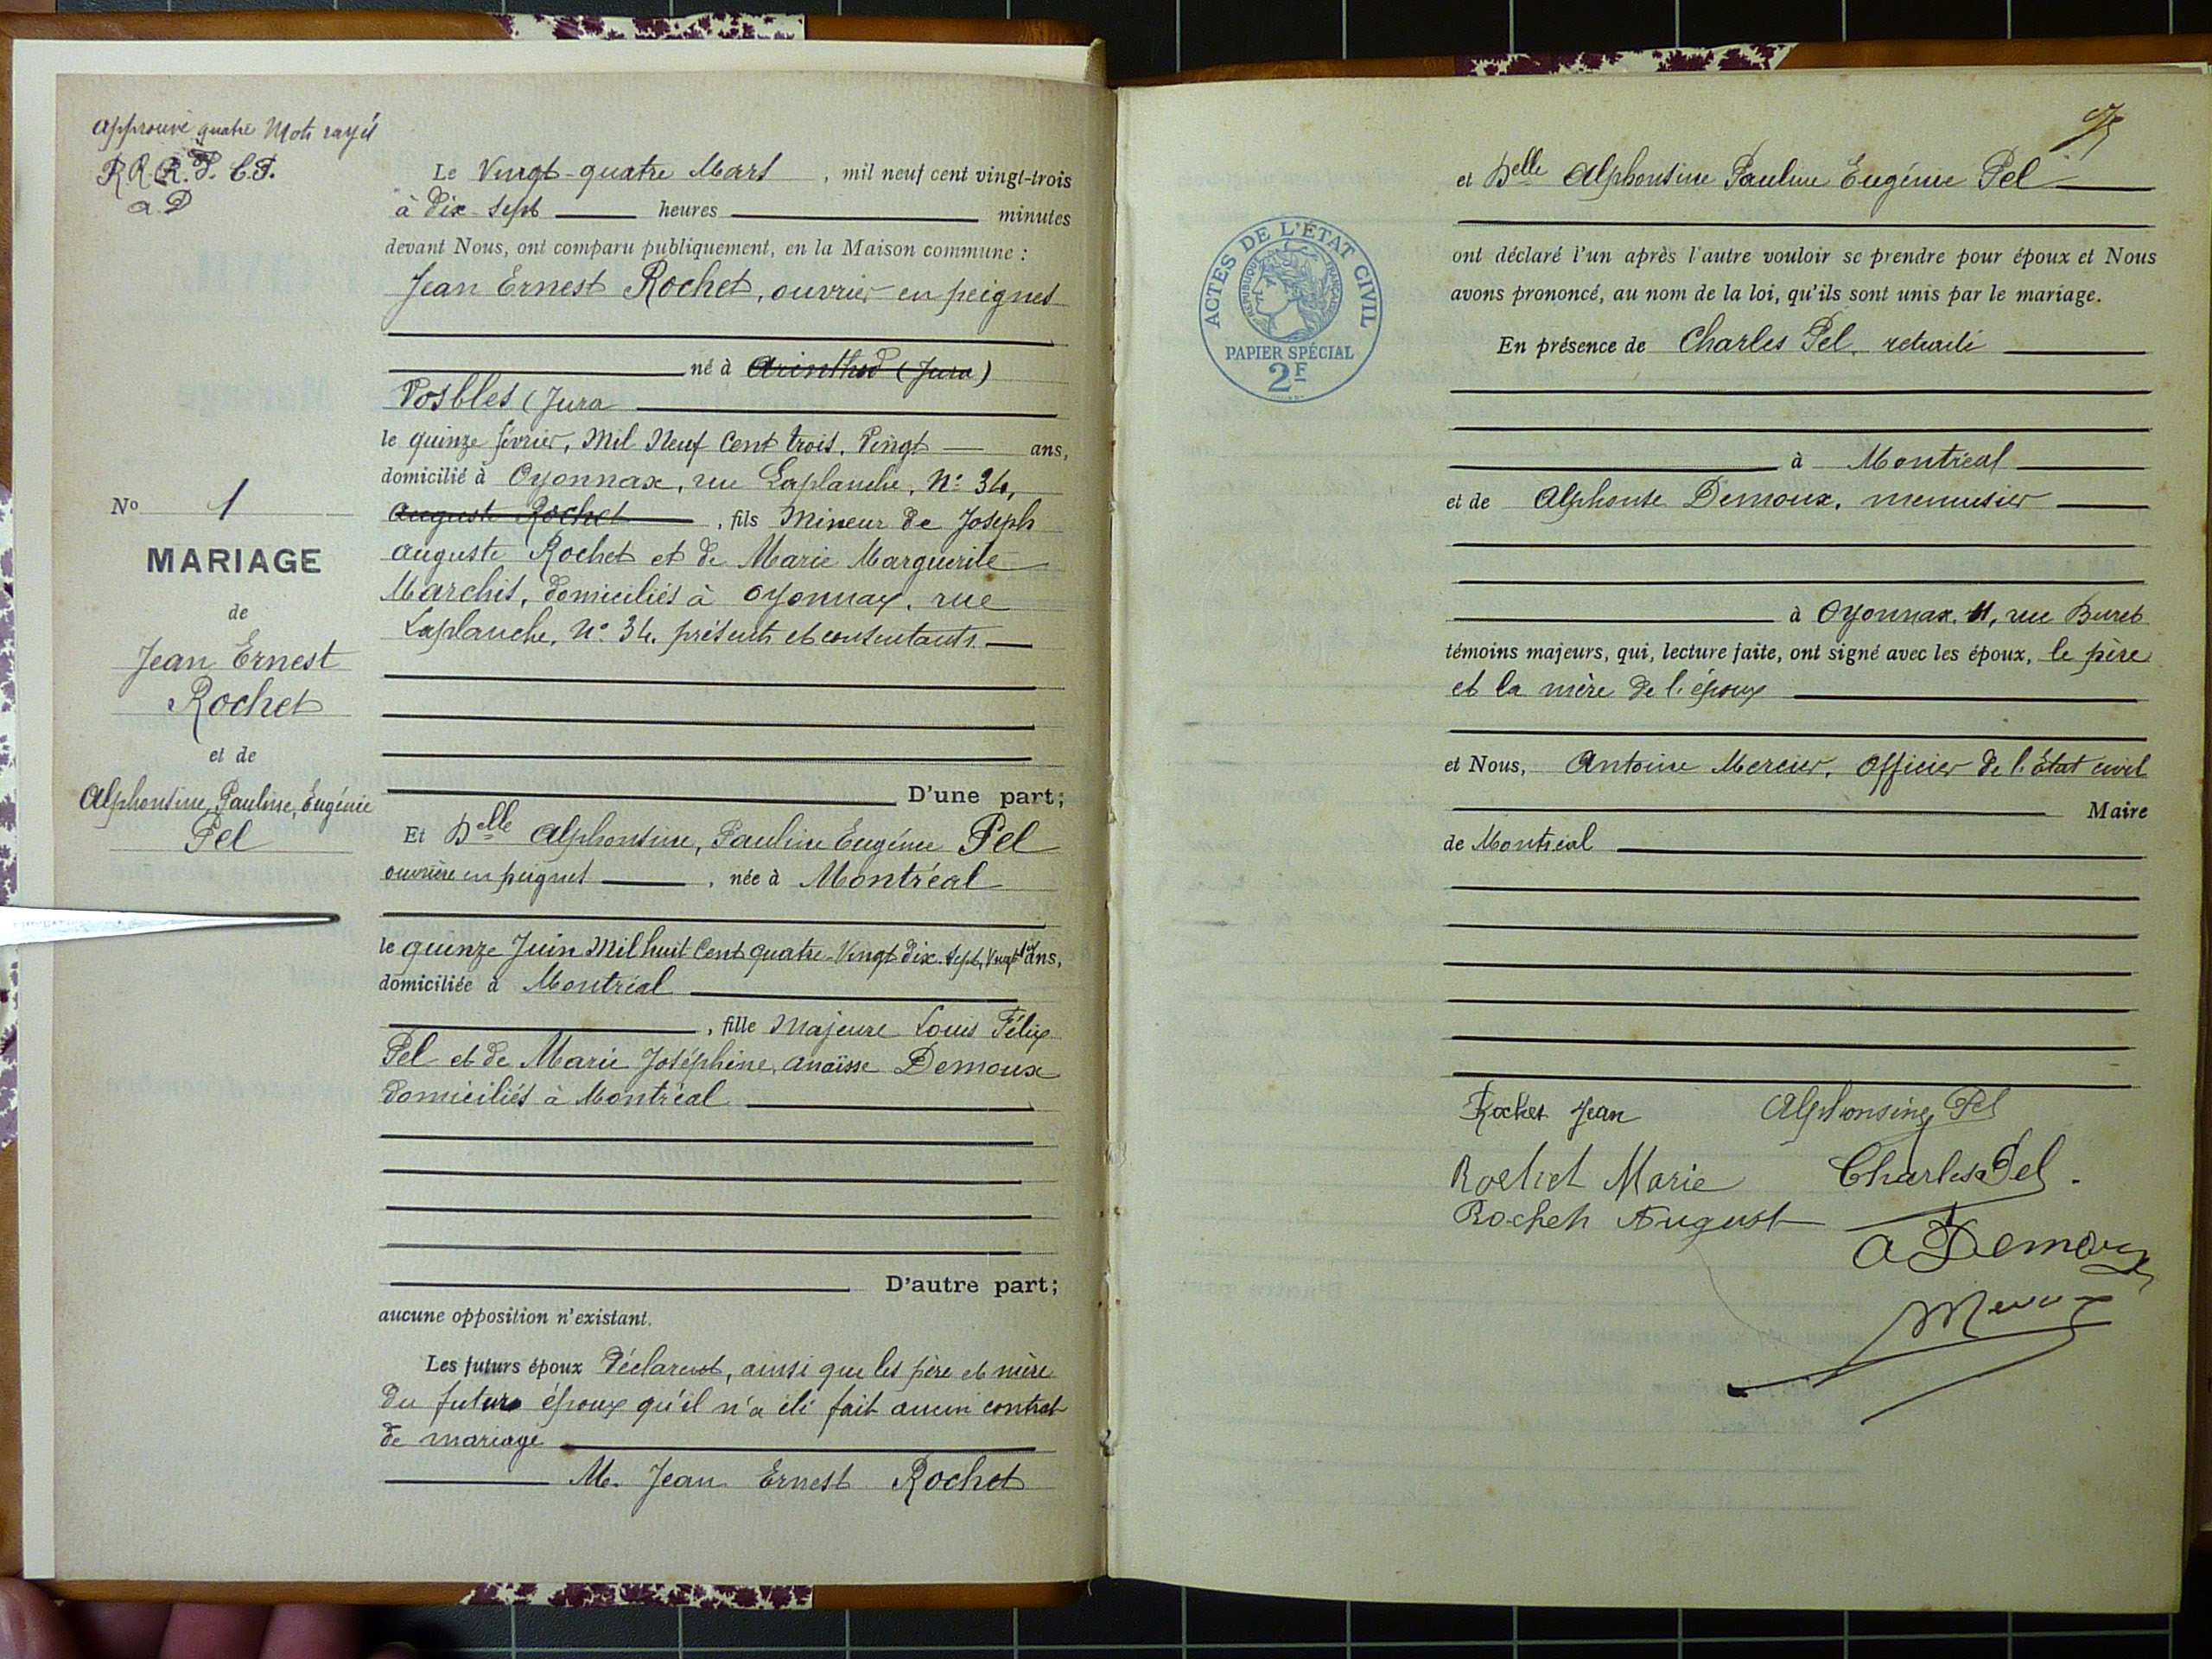 approuvé quatre Mots rayés
R R R. P. C. P.
a D
Le Vingt-quatre Mars , mil neuf cent vingt-trois
à Dix-sept heures minutes
devant Nous, ont comparu publiquement, en la Maison commune :
Jean Ernest Rochet, ouvrier en peignes
né à Arinthod (Jura)
Vosbles (Jura
le quinze février, Mil Neuf Cent trois. Vingt ans,
domicilié à Oyonnax, rue Laplanche, N: 34,
Auguste Rochet , fils Mineur de Joseph
Auguste Rochet et de Marie Marguerite
Marchis, domiciliés à Oyonnax, rue
Laplanche, N: 34. présents et consentants.
D'une part;
No 1
MARIAGE
de
Jean Ernest
Rochet
et de
Alphonsine, Pauline, Eugénie
Pel
Et Delle Alphonsine, Pauline Eugénie Pel
ouvrière en peignes , née à Montréal
le quinze Juin Mil huit Cent quatre-Vingt Dix-sept, Vingt ans,
domiciliée à Montréal
, fille Majeure Louis Félix
Pel et de Marie Joséphine, anaïsse Demoux
domiciliés à Montréal
D'autre part;
aucune opposition n'existant.
Les futurs époux Déclarent, ainsi que les père et mère
du futur époux qu'il n'a été fait aucun contrat
de mariage
M. Jean Ernest Rochet
et Delle Alphonsine Pauline Eugénie Pel
ACTES DE L'ÉTAT CIVIL
RÉPUBLIQUE FRANÇAISE
PAPIER SPÉCIAL
2F
ont déclaré l'un après l'autre vouloir se prendre pour époux et Nous
avons prononcé, au nom de la loi, qu'ils sont unis par le mariage.
En présence de Charles Pel, retraité
à Montréal
et de Alphonse Demoux, menuisier
à Oyonnax, 11, rue Buret
témoins majeurs, qui, lecture faite, ont signé avec les époux, le père
et la mère de l'époux
et Nous, Antoine Mercier, Officier de l'État civil
Maire
de Montréal
Rochet Jean Alphonsine Pel
Rochet Marie Charles Pel.
Rochet August
A Demoux
Mercier